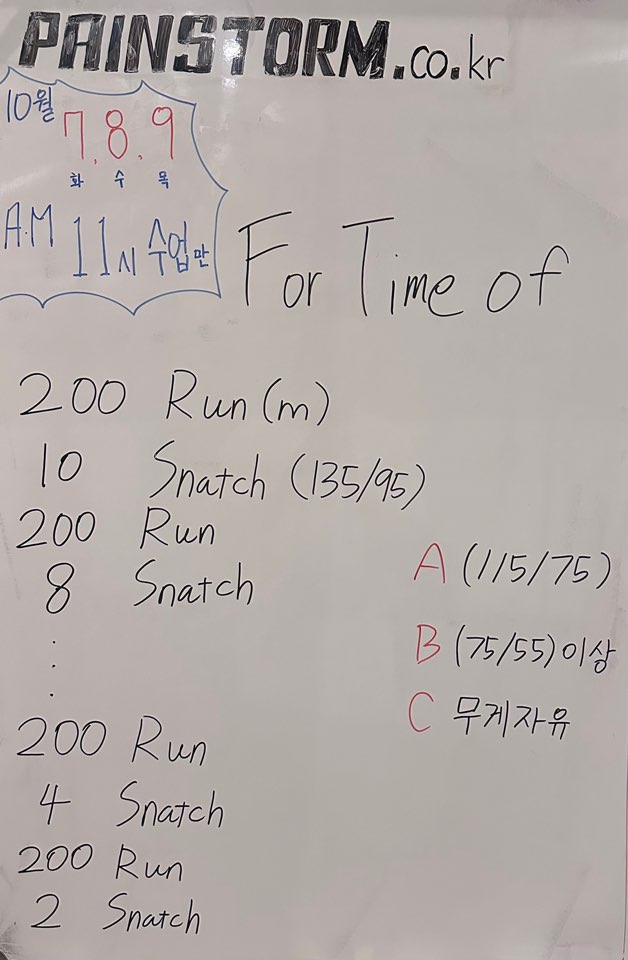 PAINSTORM.co.kr
10월 7.8.9
화 수 목
A.M 11시 수업만
For Time of
200 Run (m)
10 Snatch (135/95)
200 Run
8 Snatch
A (115/75)
B (75/55) 이상
C 무게자유
200 Run
4 Snatch
200 Run
2 Snatch